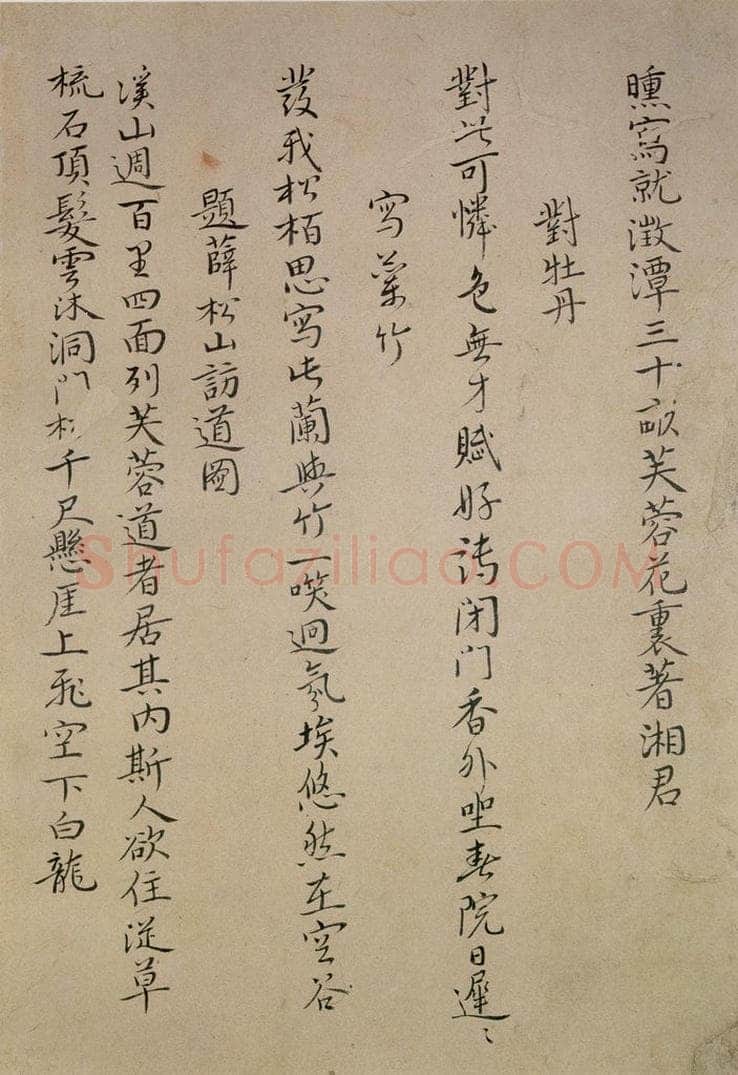 曛寫就澂潭三十畝芙蓉花裏著湘君
對牡丹
對此可憐色無才賦好詩閉門香外坐春院日遲〻
寫蘭竹
發我松栢思寫此蘭與竹一嘆迥氛埃悠然在空谷
題薛松山訪道圖
溪山週百里四面列芙蓉道者居其內斯人欲往從草
梳石頂髮雲沐洞門松千尺懸厓上飛空下白龍
Shufaziliao.COM